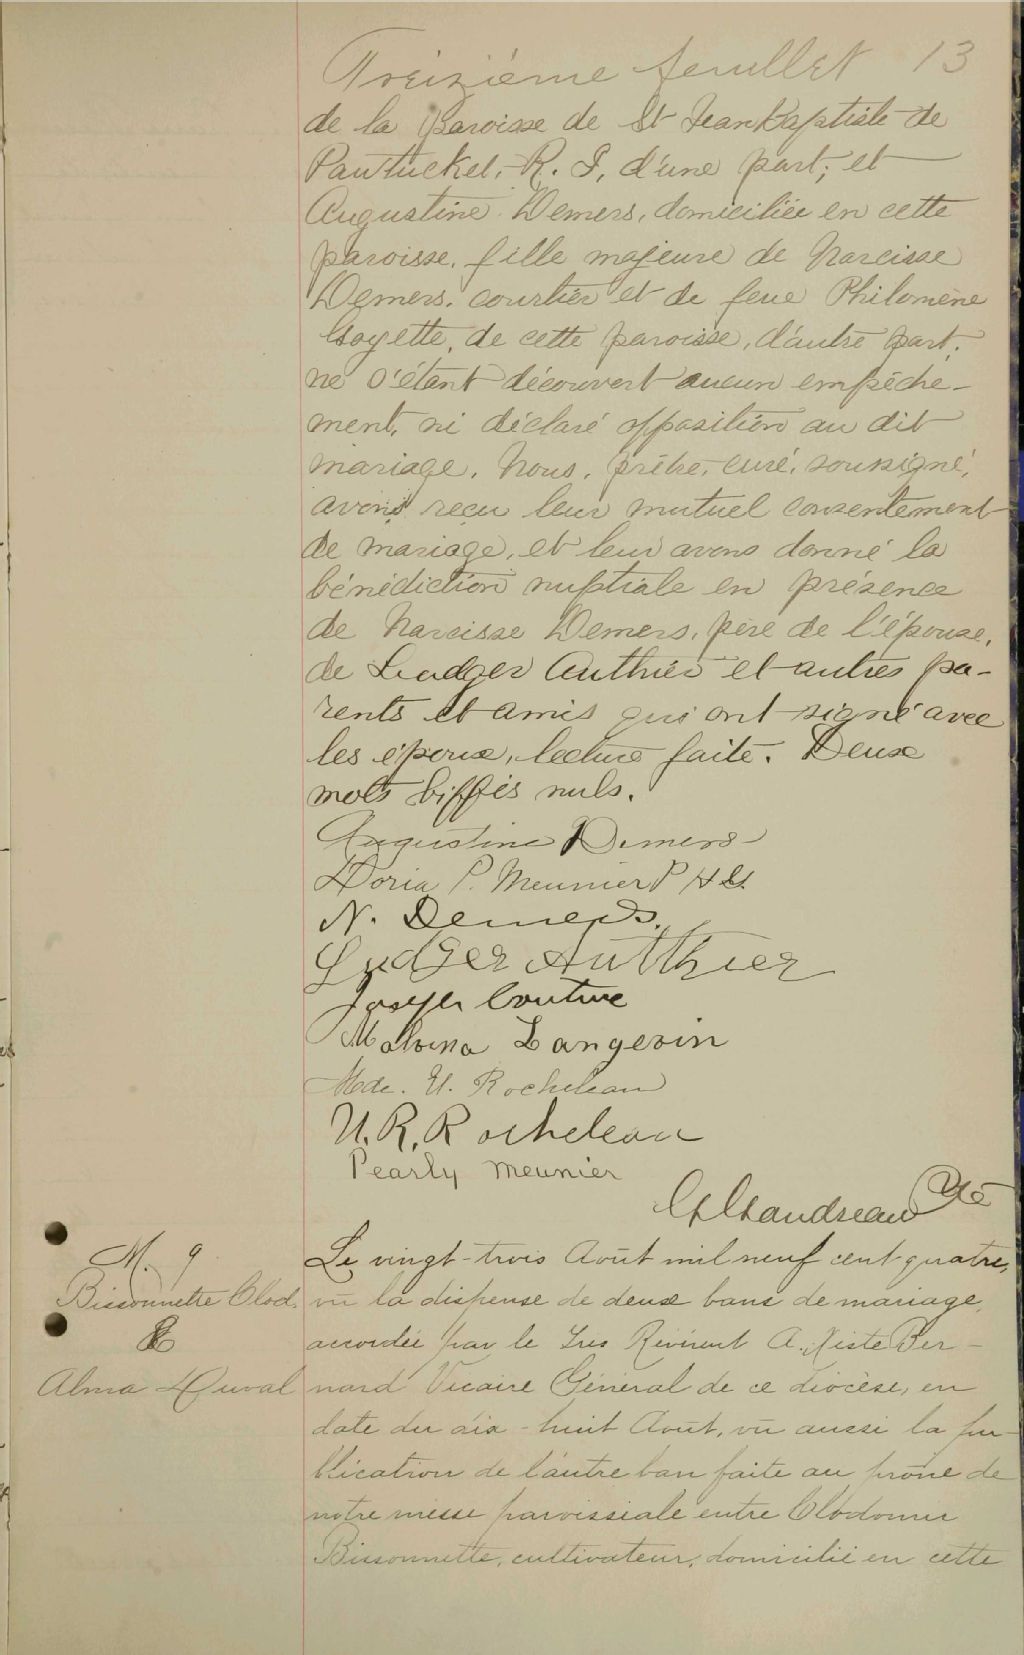 Treizième feuillet 13
de la paroisse de St Jean Baptiste de
Pawtucket, R. I, d'une part; et
Augustine Demers, domiciliée en cette
paroisse, fille majeure de Narcisse
Demers, courtier et de feue Philomène
Goyette, de cette paroisse, d'autre part;
ne s'étant découvert aucun empêche-
ment, ni déclaré opposition au dit
mariage, Nous, prêtre, curé, soussigné,
avons reçu leur mutuel consentement
de mariage, et leur avons donné la
bénédiction nuptiale en présence
de Narcisse Demers, père de l'épouse,
de Ludger Authier et autres pa-
rents et amis qui ont signé avec
les époux, lecture faite. Deux
mots biffés nuls.
Augustine Demers
Doria P. Meunier
N. Demers.
Ludger Authier
Joseph Couture
Malvina Langevin
Mde. U. Rocheleau
U. R. Rocheleau
Pearly Meunier
Gaudreau
M. 9
Bissonnette Clod.
&
Alma Duval
Le vingt-trois Août mil neuf cent quatre,
vû la dispense de deux bans de mariage,
accordée par le Très Révérent A. Xiste Ber-
nard Vicaire Général de ce diocèse, en
date du dix-huit Août, vû aussi la pu-
blication de l'autre ban faite au prône de
notre messe paroissiale entre Clodomir
Bissonnette, cultivateur, domicilié en cette